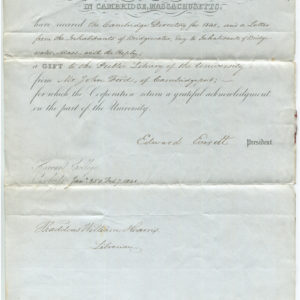 IN CAMBRIDGE, MASSACHUSETTS,
have received the Cambridge Directory for 1848, and a Letter
from the Inhabitants of Bridgwater, Eng. to Inhabitants of Bridg-
water, Mass. with the Reply,
a GIFT to the Public Library of the University
from Mr. John Ford, of Cambridgeport;
for which the Corporation return a grateful acknowledgment
on the part of the University.
Edward Everett President.
Harvard College
Thaddeus William Harris
Librarian.